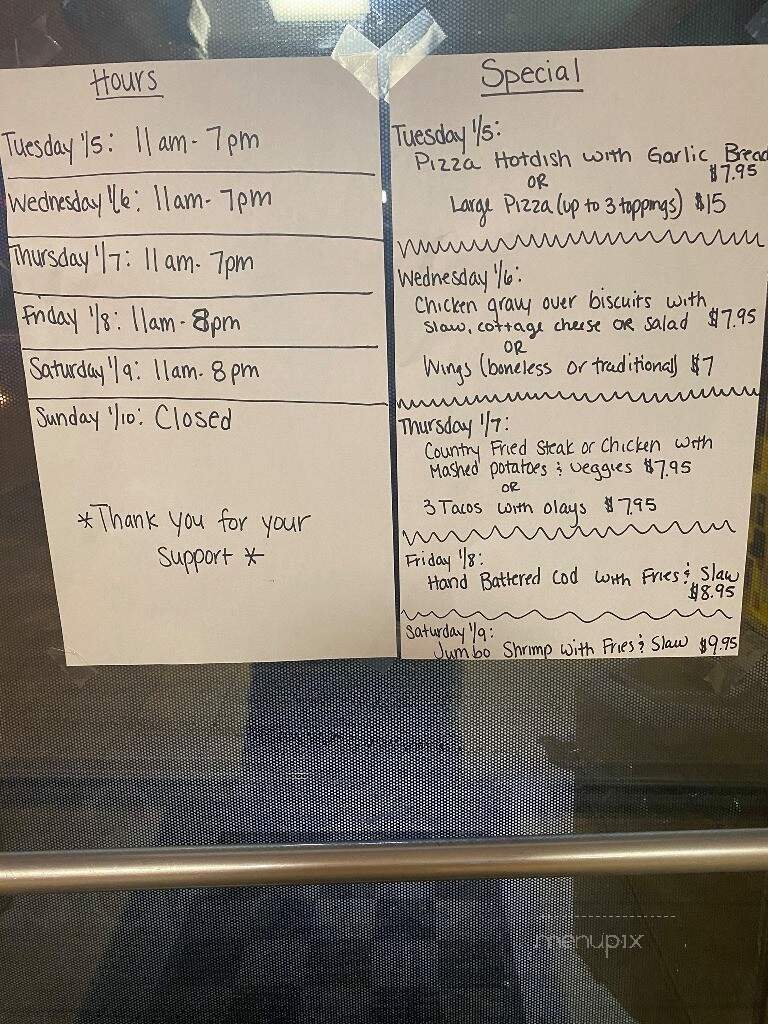 Hours
Tuesday 1/5: 11am- 7pm
Wednesday 1/6: 11am- 7pm
Thursday 1/7: 11am- 7pm
Friday 1/8: 11am- 8pm
Saturday 1/9: 11am- 8pm
Sunday 1/10: Closed
*Thank you for your
Support *
Special
Tuesday 1/5:
Pizza Hotdish with Garlic Bread
$7.95
OR
Large Pizza (up to 3 toppings) $15
Wednesday 1/6:
Chicken gravy over biscuits with
slaw, cottage cheese or salad $7.95
OR
Wings (boneless or traditional) $7
Thursday 1/7:
Country Fried Steak or Chicken with
Mashed potatoes & veggies $7.95
OR
3 Tacos with olays $7.95
Friday 1/8:
Hand Battered Cod with Fries & Slaw
$8.95
Saturday 1/9:
Jumbo Shrimp with Fries & Slaw $9.95
menupix